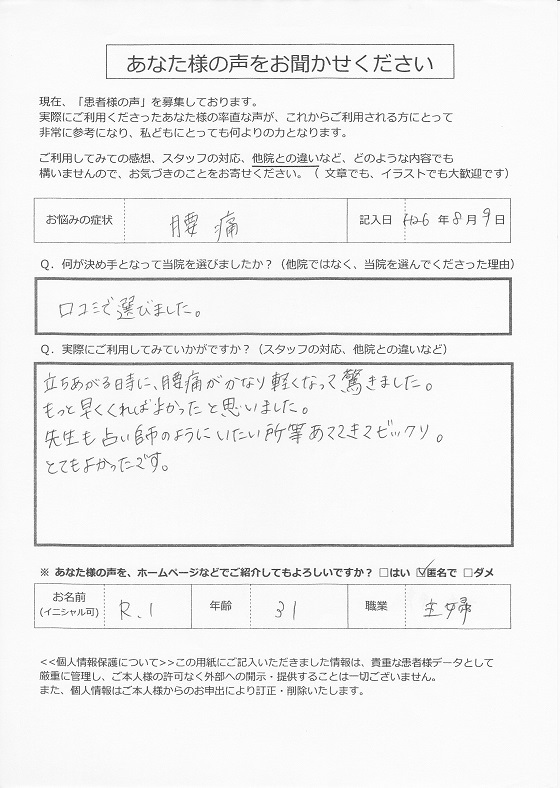 あなた様の声をお聞かせください
現在、「患者様の声」を募集しております。
実際にご利用くださったあなた様の率直な声が、これからご利用される方にとって
非常に参考になり、私どもにとっても何よりの力となります。
ご利用してみての感想、スタッフの対応、他院との違いなど、どのような内容でも
構いませんので、お気づきのことをお寄せください。（ 文章でも、イラストでも大歓迎です）
お悩みの症状 腰痛 記入日 H26 年 8 月 9 日
Q．何が決め手となって当院を選びましたか？（他院ではなく、当院を選んでくださった理由）
口コミで選びました。
Q．実際にご利用してみていかがですか？（スタッフの対応、他院との違いなど）
立ちあがる時に、腰痛がかなり軽くなって驚きました。
もっと早くくればよかったと思いました。
先生も占い師のようにいたい所等あててきてビックリ。
とてもよかったです。
※ あなた様の声を、ホームページなどでご紹介してもよろしいですか？ □はい ☑匿名で □ダメ
お名前
(イニシャル可) R.I 年齢 31 職業 主婦
<<個人情報保護について>>この用紙にご記入いただきました情報は、貴重な患者様データとして
厳重に管理し、ご本人様の許可なく外部への開示・提供することは一切ございません。
また、個人情報はご本人様からのお申出により訂正・削除いたします。